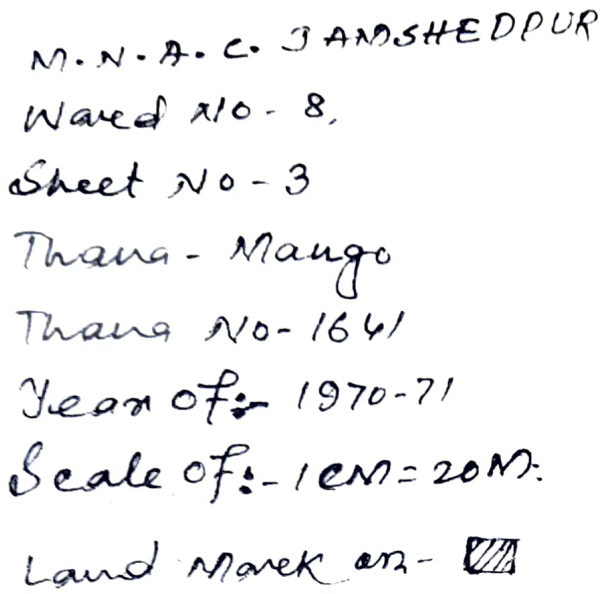 M.N.A.C. JAMSHEDPUR
Wared No - 8,
Sheet No - 3
Thana - Mango
Thana No - 1641
Year of:- 1970-71
Scale of:- 1 CM = 20 M.
Land Marek on -